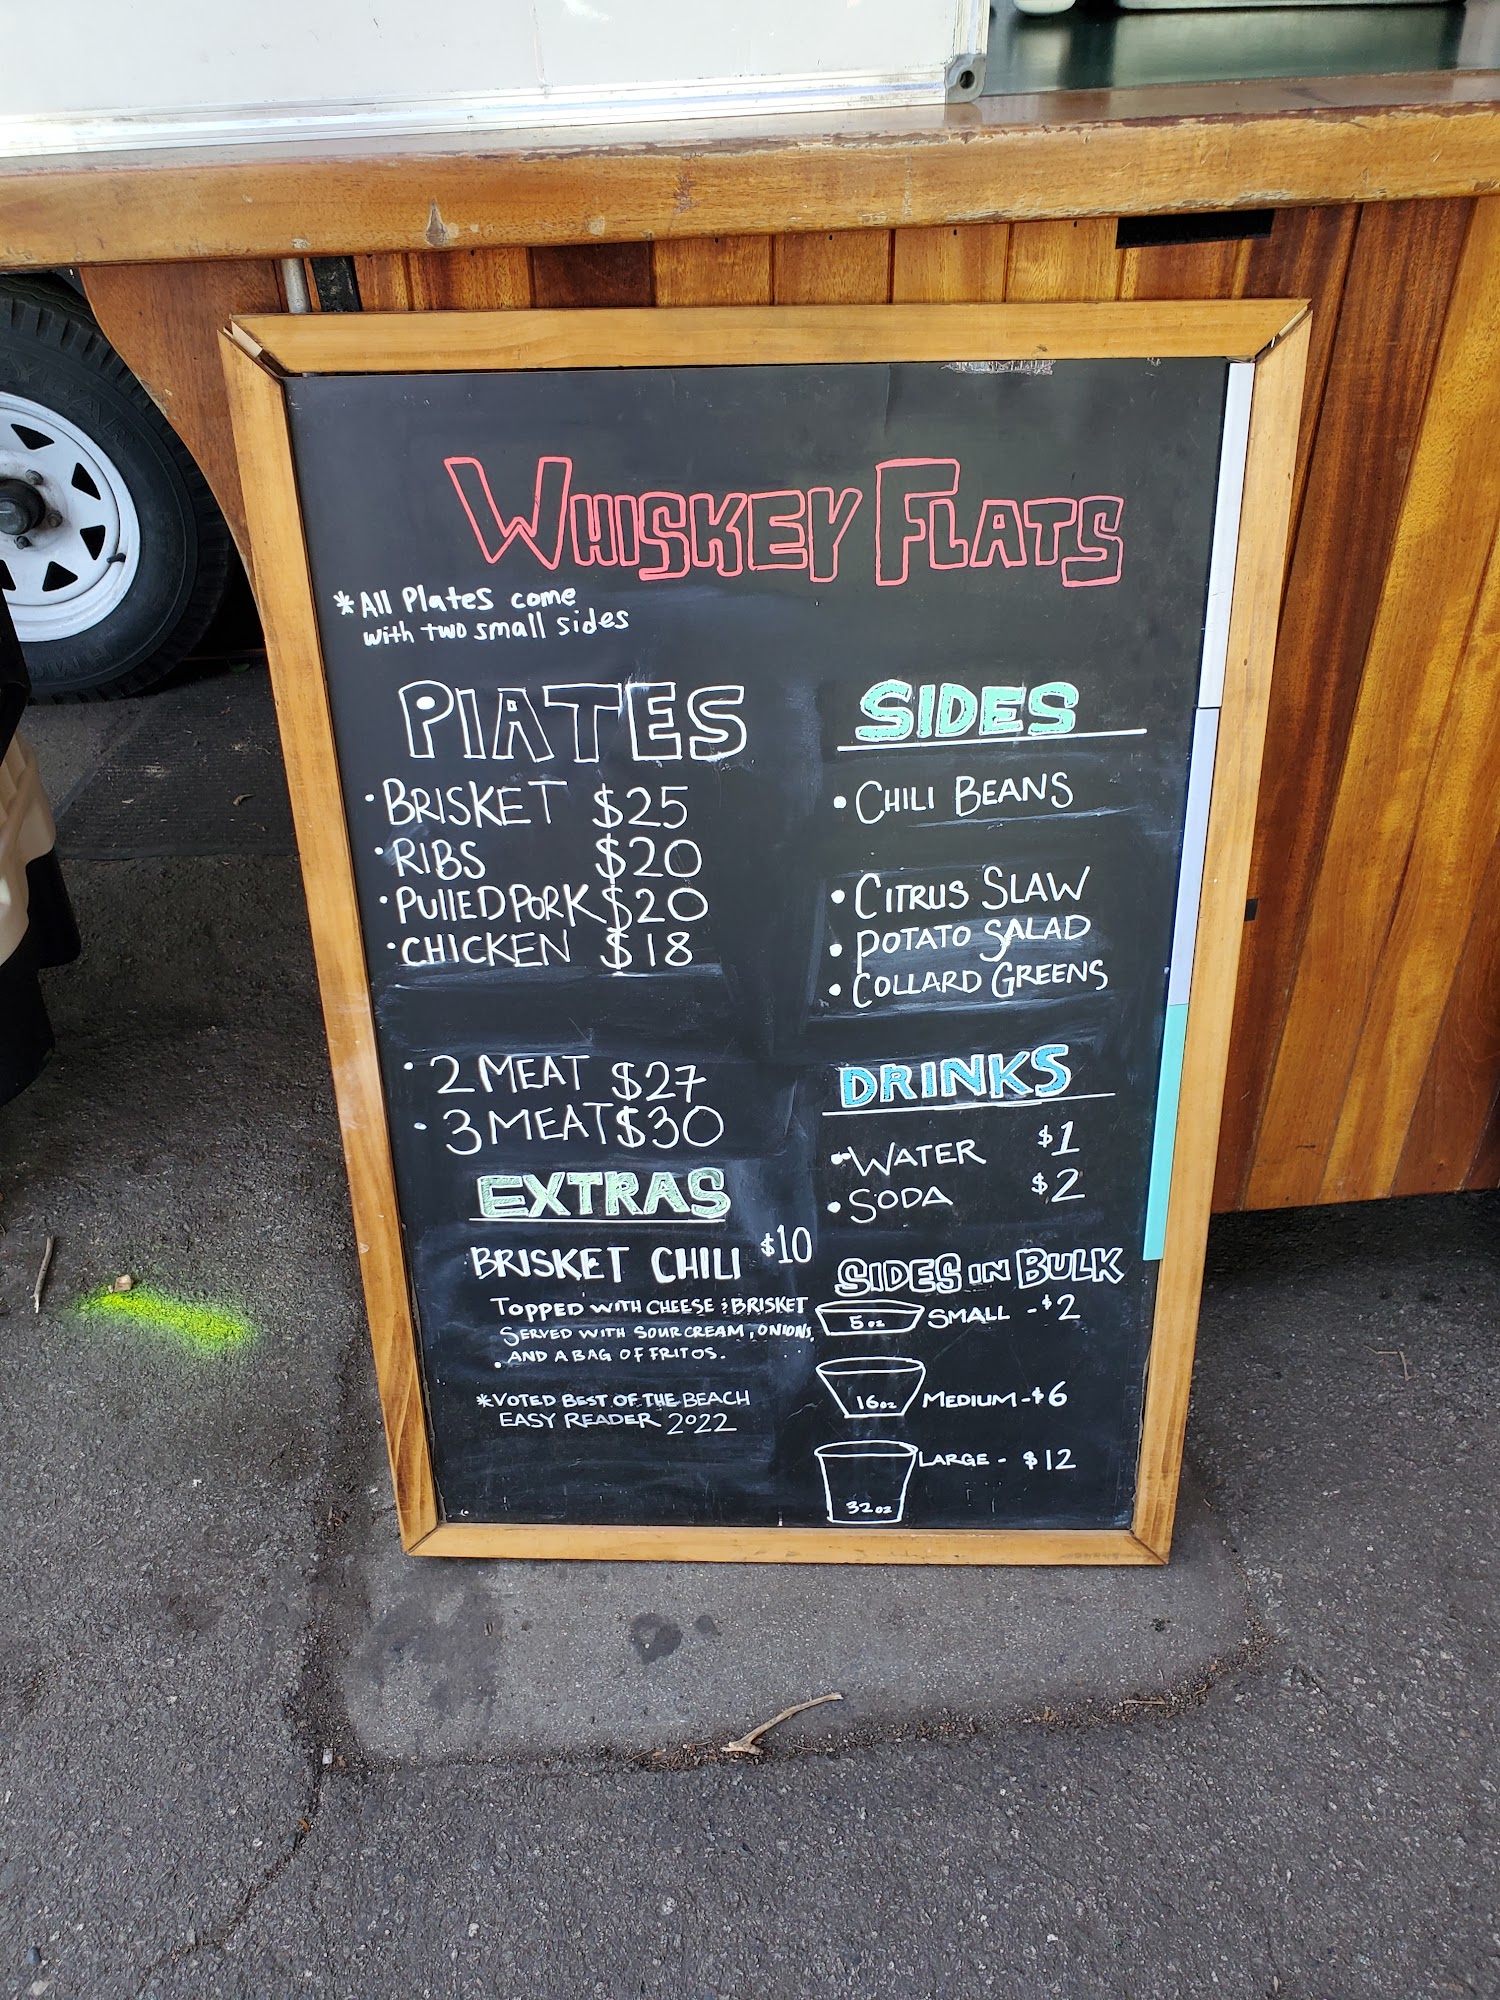 WHISKEY FLATS
*All Plates come
with two small sides
PLATES
• BRISKET $25
• RIBS $20
• PULLED PORK $20
• CHICKEN $18
• 2 MEAT $27
• 3 MEAT $30
EXTRAS
BRISKET CHILI $10
TOPPED WITH CHEESE & BRISKET
SERVED WITH SOUR CREAM, ONIONS,
AND A BAG OF FRITOS.
*VOTED BEST OF THE BEACH
EASY READER 2022
SIDES
• CHILI BEANS
• CITRUS SLAW
• POTATO SALAD
• COLLARD GREENS
DRINKS
• WATER $1
• SODA $2
SIDES IN BULK
5 oz SMALL - $2
16 oz MEDIUM - $6
32 oz LARGE - $12